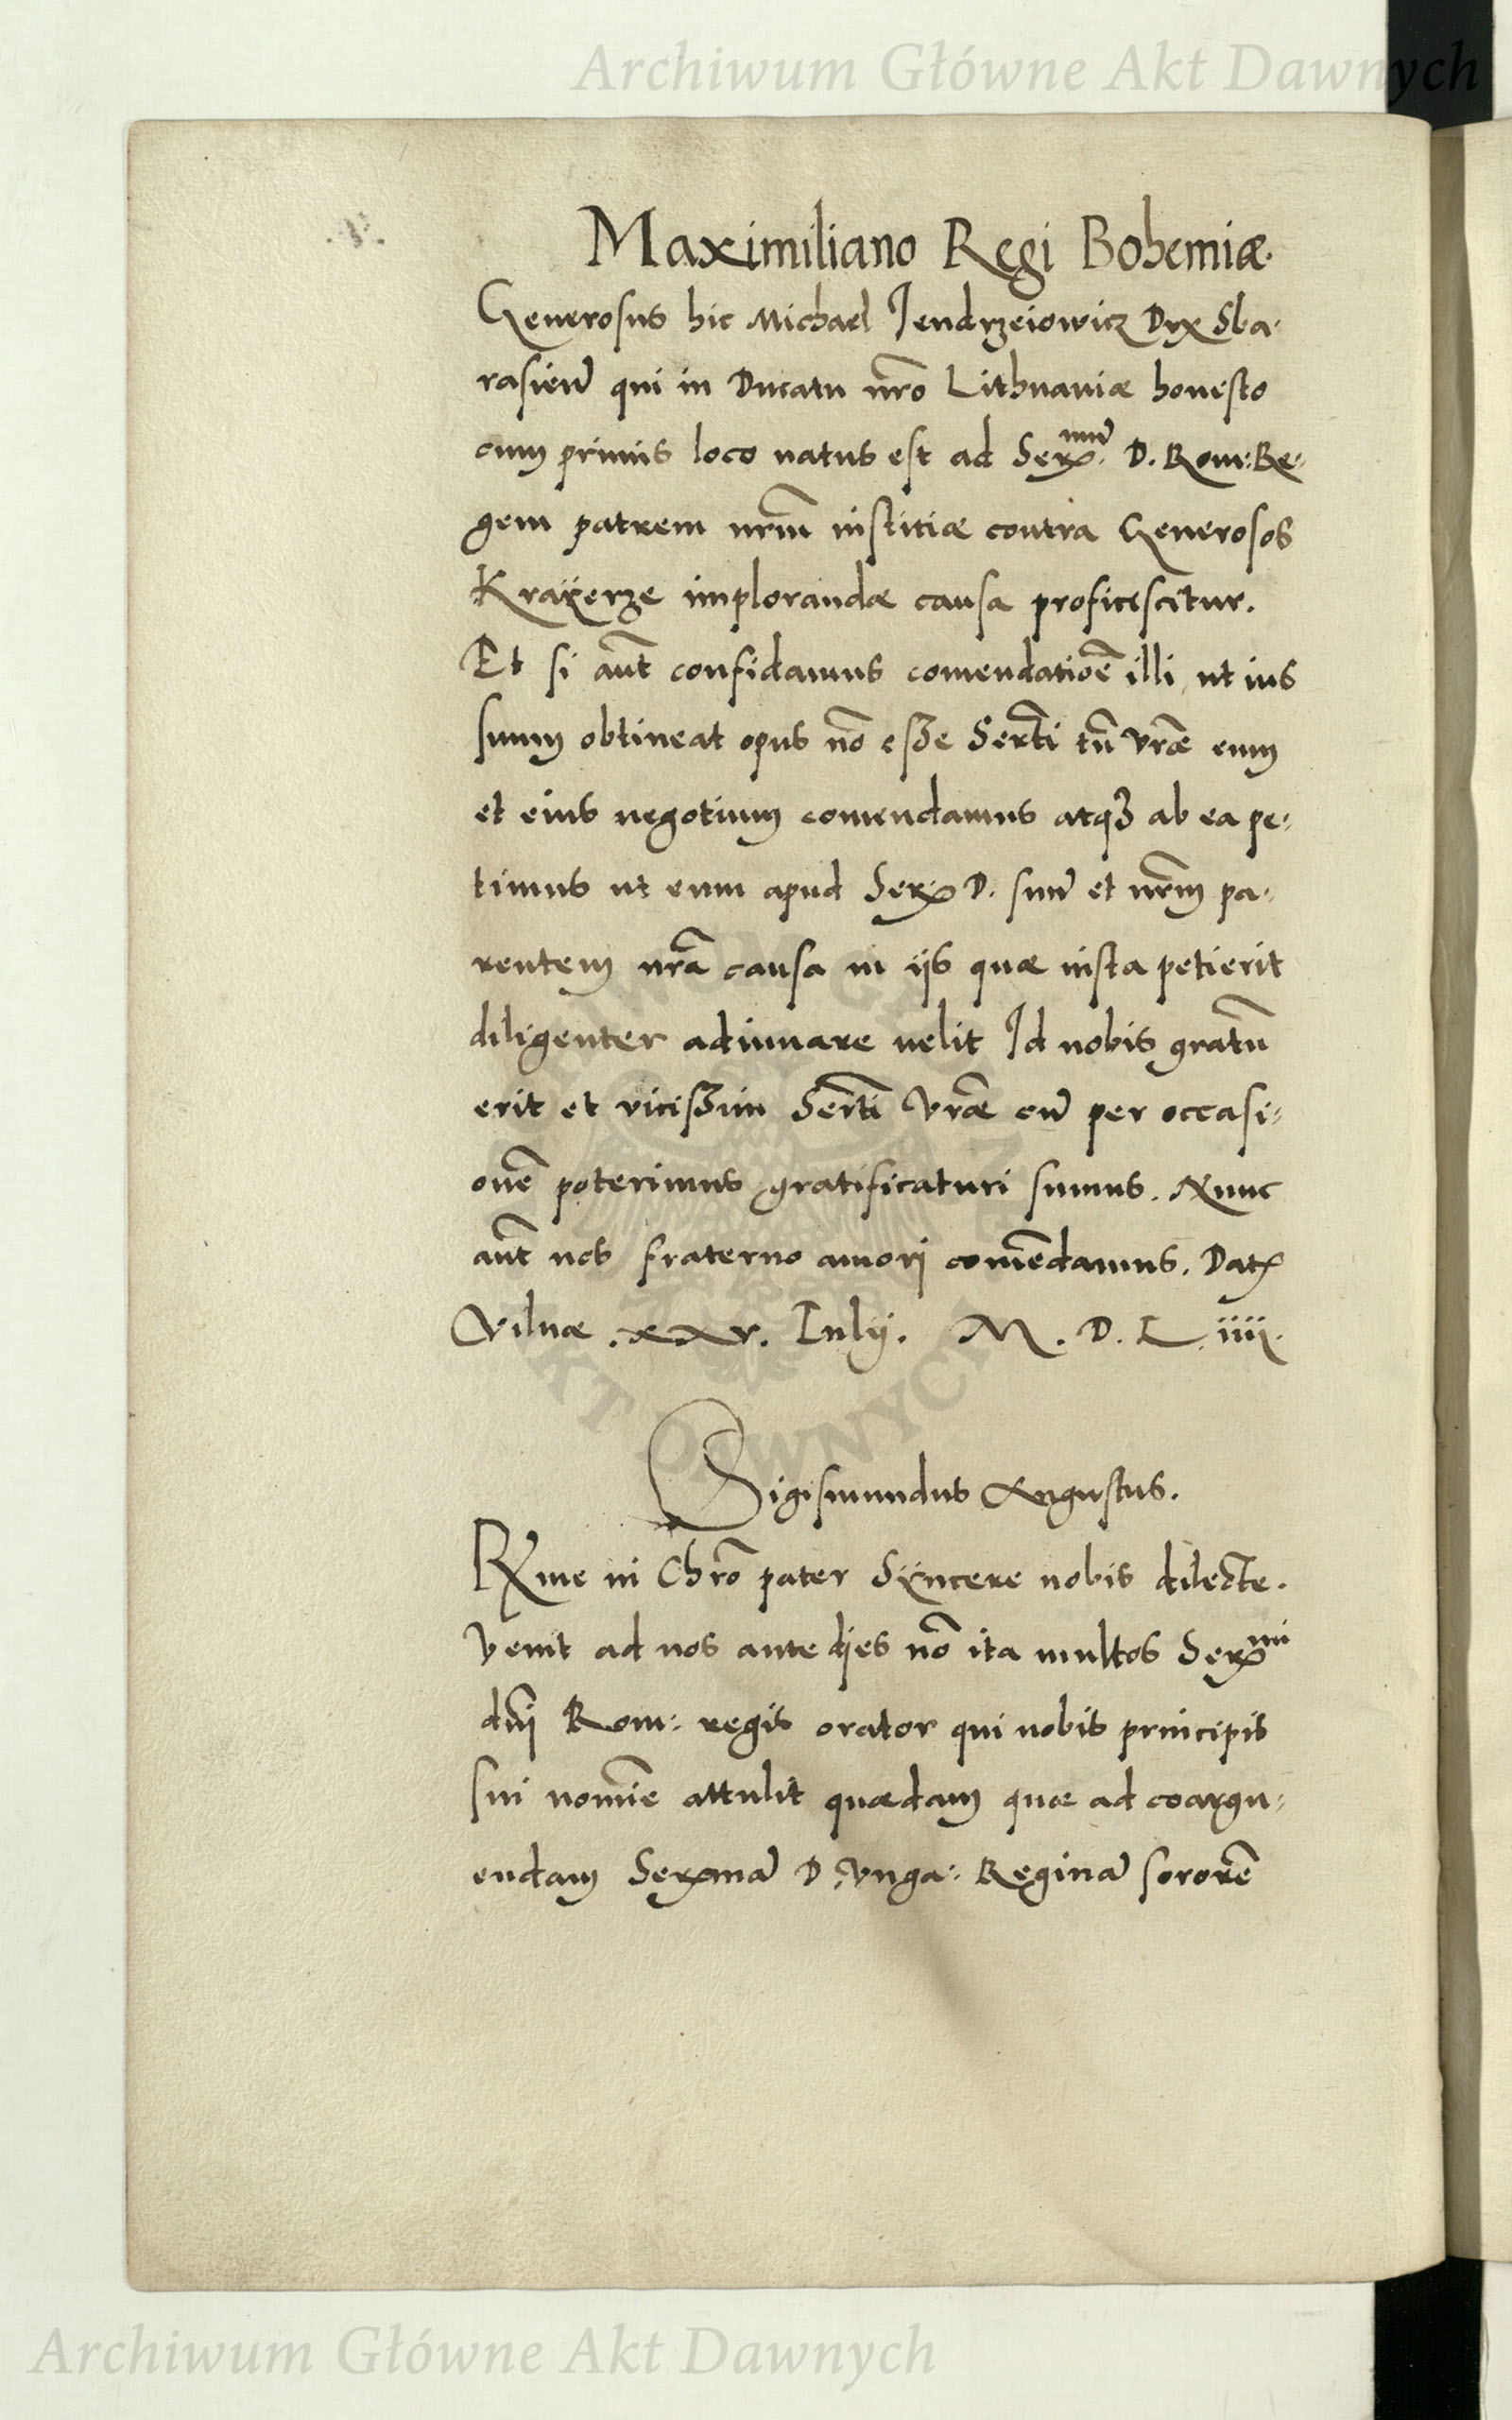 Archiwum Główne Akt Dawnych
Maximiliano Regi Bohemiæ.
Generosus hic Michael Jendrzeiowicz Dux Sba-
rasień qui in Ducatu nr̃o Lithuaniæ honesto
cum primis loco natus est ad Ser. mũ D. Rom: Re-
gem patrem nr̃m iustitiæ contra Generosos
Kraÿerze implorandæ causa proficiscitur.
Et si aũt confidamus comendatiõẽ illi ut ius
suum obtineat opus nõ esse Serti tñ Vrãe eum
et eius negotium comendamus atq3 ab ea pe-
timus ut eum apud Ser. D. suũ et nr̃m pa-
rentem nrã causa in ijs quæ iusta petierit
diligenter adiuuare uelit Id nobis gratũ
erit et vicissim Serti Vrãe cũ per occasi-
onẽ poterimus gratificaturi sumus. Nunc
aũt nos fraterno amori comẽdamus. Dat
Vilnæ . xxv. Iulij. M. D. L. iiij.
Sigismundus Augustus.
Rme in Chrõ pater Sÿncere nobis dilecte.
Venit ad nos ante dies nõ ita multos Ser mi
dñi Rom: regis orator qui nobis principis
sui nomĩe attulit quædam quæ ad coargu-
endam Sermã D Vnga: Reginã sororẽ
ARCHIWUM GŁÓWNE AKT DAWNYCH
Archiwum Główne Akt Dawnych